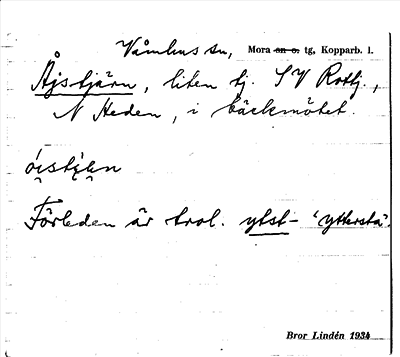 Våmhus sn, Mora sn o. tg, Kopparb. l.
Åjstjärn, liten tj. SV Rottj.,
N Heden, i bäckmötet.
Förleden är trol. ytst- 'yttersta'.
Bror Lindén 1934